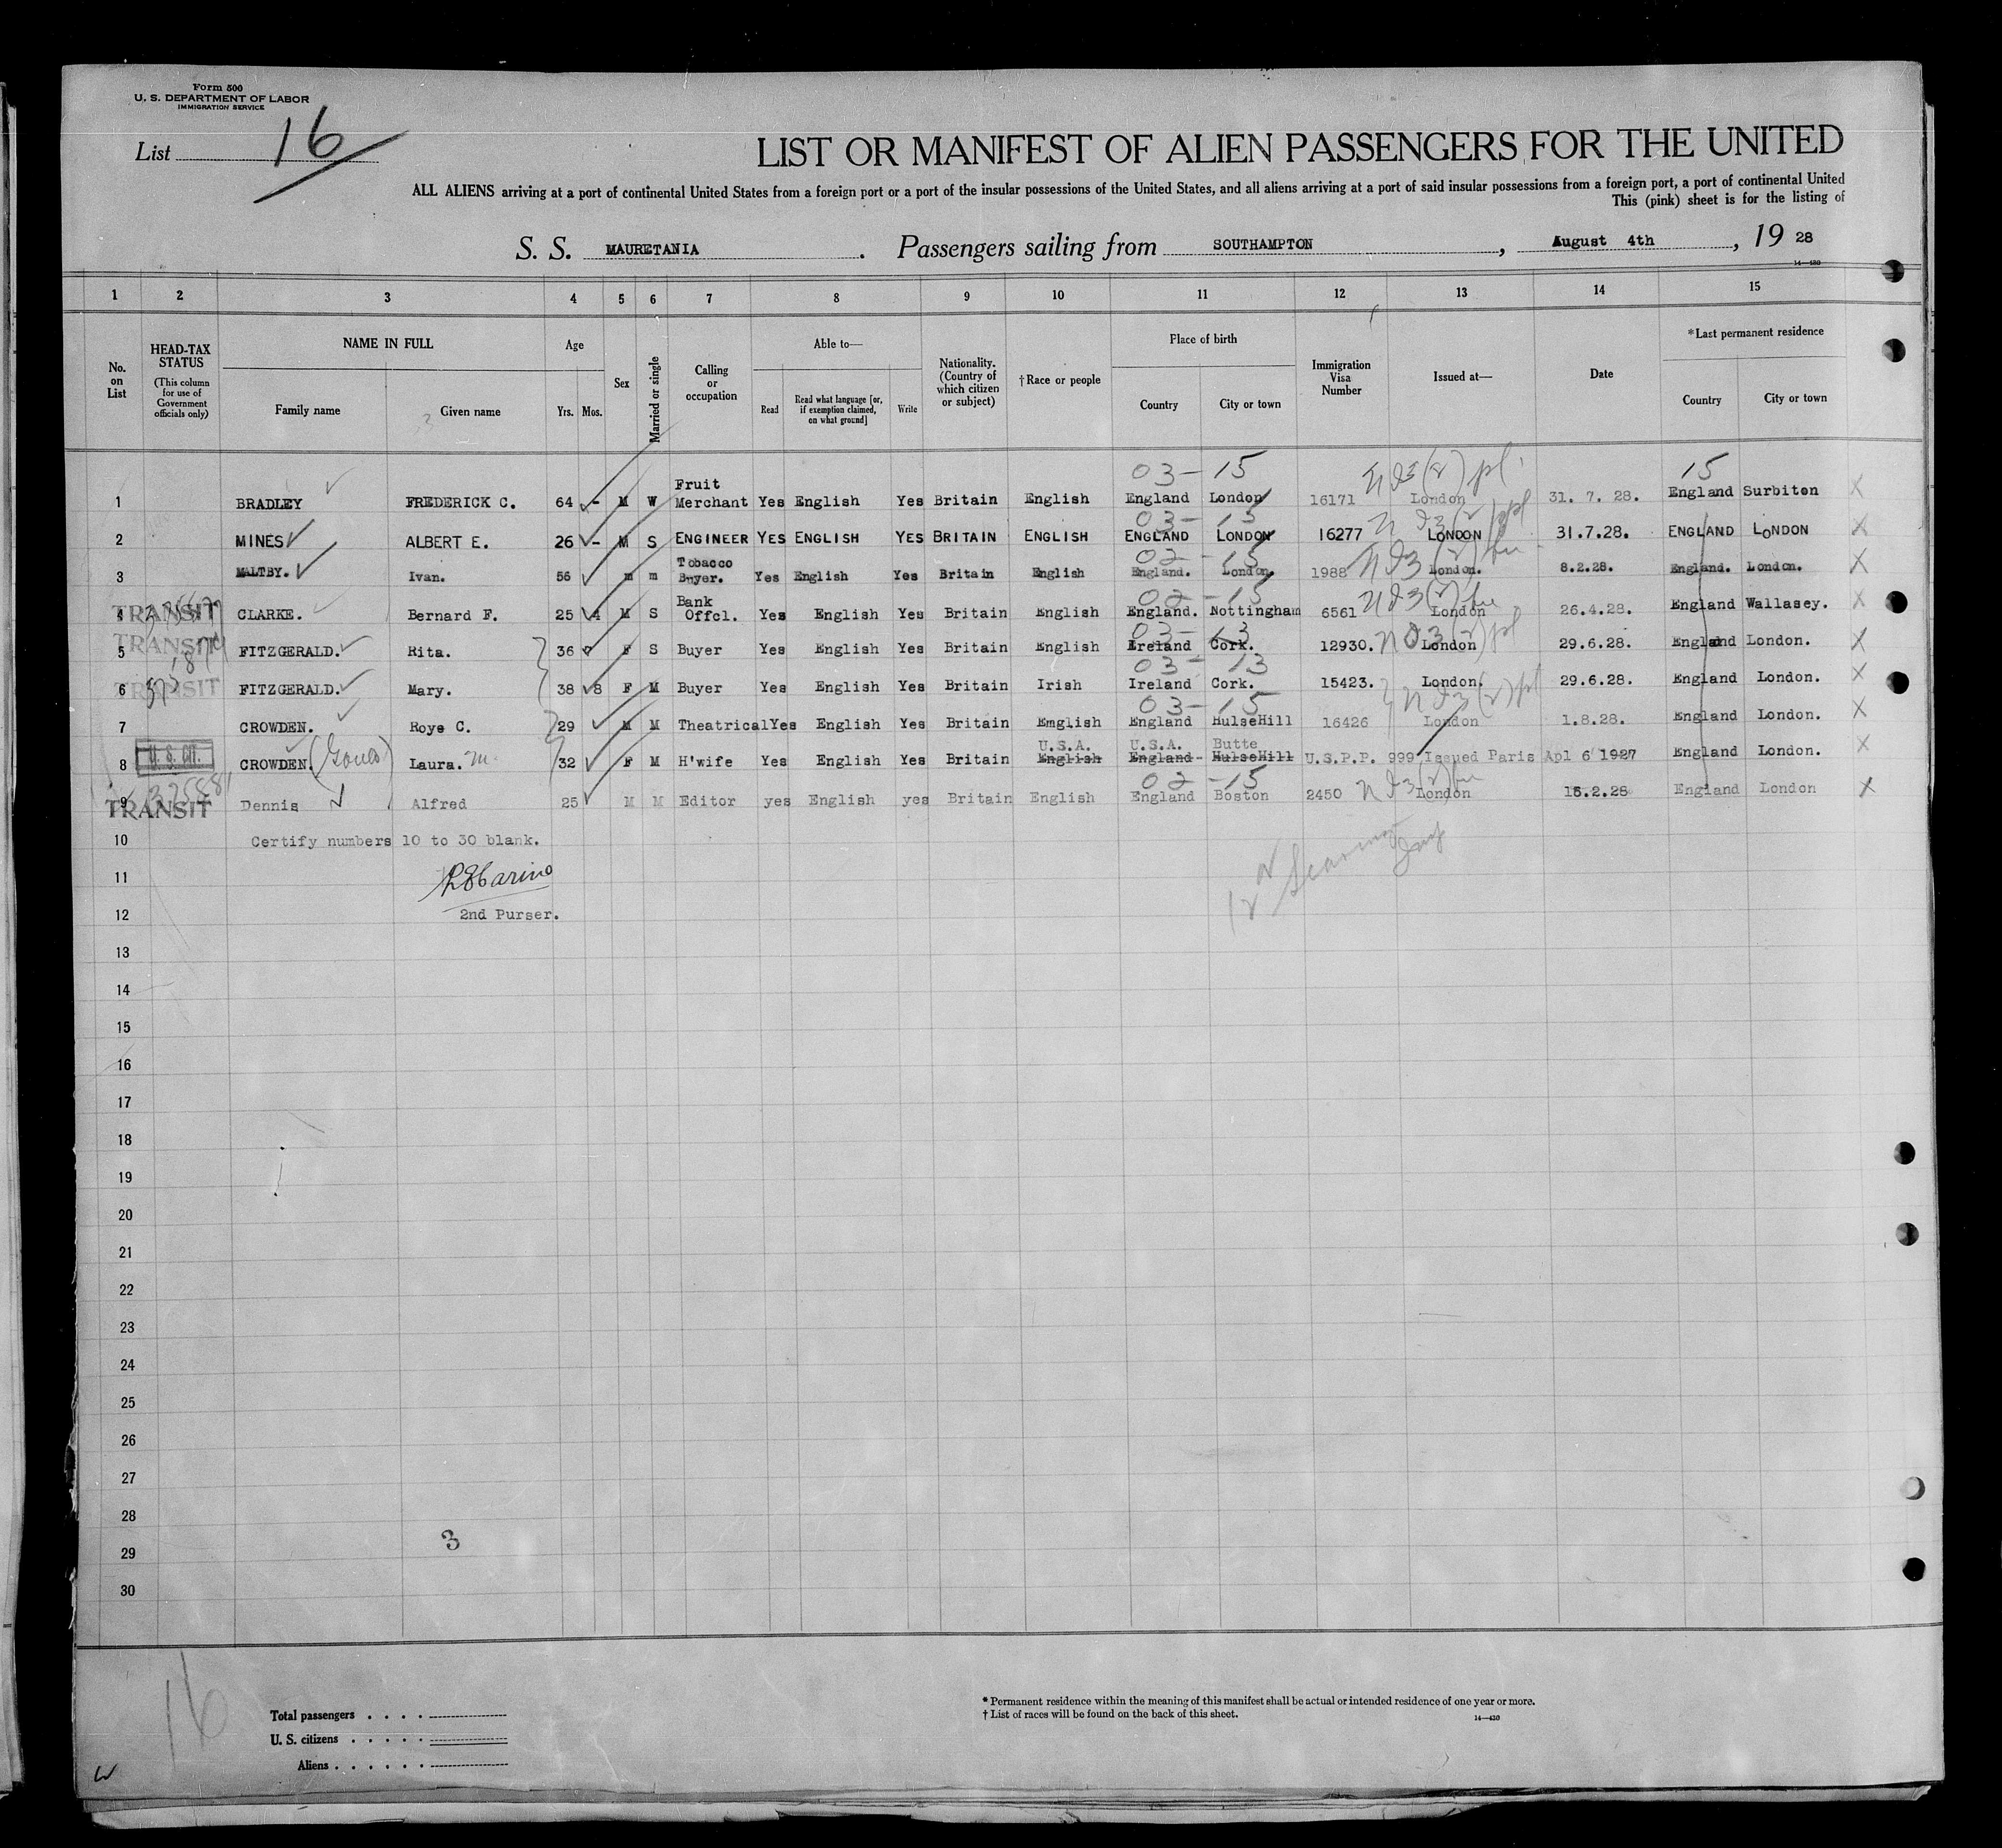 Form 500
U. S. DEPARTMENT OF LABOR
IMMIGRATION SERVICE
List 16
LIST OR MANIFEST OF ALIEN PASSENGERS FOR THE UNITED
ALL ALIENS arriving at a port of continental United States from a foreign port or a port of the insular possessions of the United States, and all aliens arriving at a port of said insular possessions from a foreign port, a port of continental United
This (pink) sheet is for the listing of
S. S. MAURETANIA. Passengers sailing from SOUTHAMPTON, August 4th, 19 28
14—430
1 2 3 4 5 6 7 8 9 10 11 12 13 14 15
No. on List
HEAD-TAX STATUS (This column for use of Government officials only)
NAME IN FULL
Family name Given name
Age
Yrs. Mos.
Sex
Married or single
Calling or occupation
Able to—
Read Read what language [or, if exemption claimed, on what ground] Write
Nationality. (Country of which citizen or subject)
†Race or people
Place of birth
Country City or town
Immigration Visa Number
Issued at—
Date
*Last permanent residence
Country City or town
03 - 15 15
1 BRADLEY FREDERICK C. 64 - M W Fruit Merchant Yes English Yes Britain English England London 16171 London 31. 7. 28. England Surbiton X
03 - 15
2 MINES ALBERT E. 26 - M S ENGINEER YES ENGLISH YES BRITAIN ENGLISH ENGLAND LONDON 16277 LONDON 31.7.28. ENGLAND LONDON X
02 - 15
3 MALTBY. Ivan. 56 m m Tobacco Buyer. Yes English Yes Britain English England. London. 1988 London. 8.2.28. England. London. X
02 - 15
TRANSIT 4 CLARKE. Bernard F. 25 4 M S Bank Offcl. Yes English Yes Britain English England. Nottingham 6561 London 26.4.28. England Wallasey. X
03 - 13
TRANSIT 5 FITZGERALD. Rita. 36 7 F S Buyer Yes English Yes Britain English Ireland Cork. 12930. London 29.6.28. England London. X
03 - 13
TRANSIT 6 FITZGERALD. Mary. 38 8 F M Buyer Yes English Yes Britain Irish Ireland Cork. 15423. London. 29.6.28. England London. X
03 - 15
7 CROWDEN. Roye C. 29 M M Theatrical Yes English Yes Britain Emglish England HulseHill 16426 London 1.8.28. England London. X
U.S.A. U.S.A. Butte
U. S. CIT. 8 CROWDEN. (Gould) Laura. M. 32 F M H'wife Yes English Yes Britain English England- HulseHill U.S.P.P. 999 Issued Paris Apl 6 1927 England London. X
02 - 15
TRANSIT 9 Dennis Alfred 25 M M Editor yes English yes Britain English England Boston 2450 London 15.2.28 England London X
10 Certify numbers 10 to 30 blank.
11
12 2nd Purser.
13
14
15
16
17
18
19
20
21
22
23
24
25
26
27
28
3
29
30
16
Total passengers
U. S. citizens
Aliens
* Permanent residence within the meaning of this manifest shall be actual or intended residence of one year or more.
† List of races will be found on the back of this sheet.
14—430
W